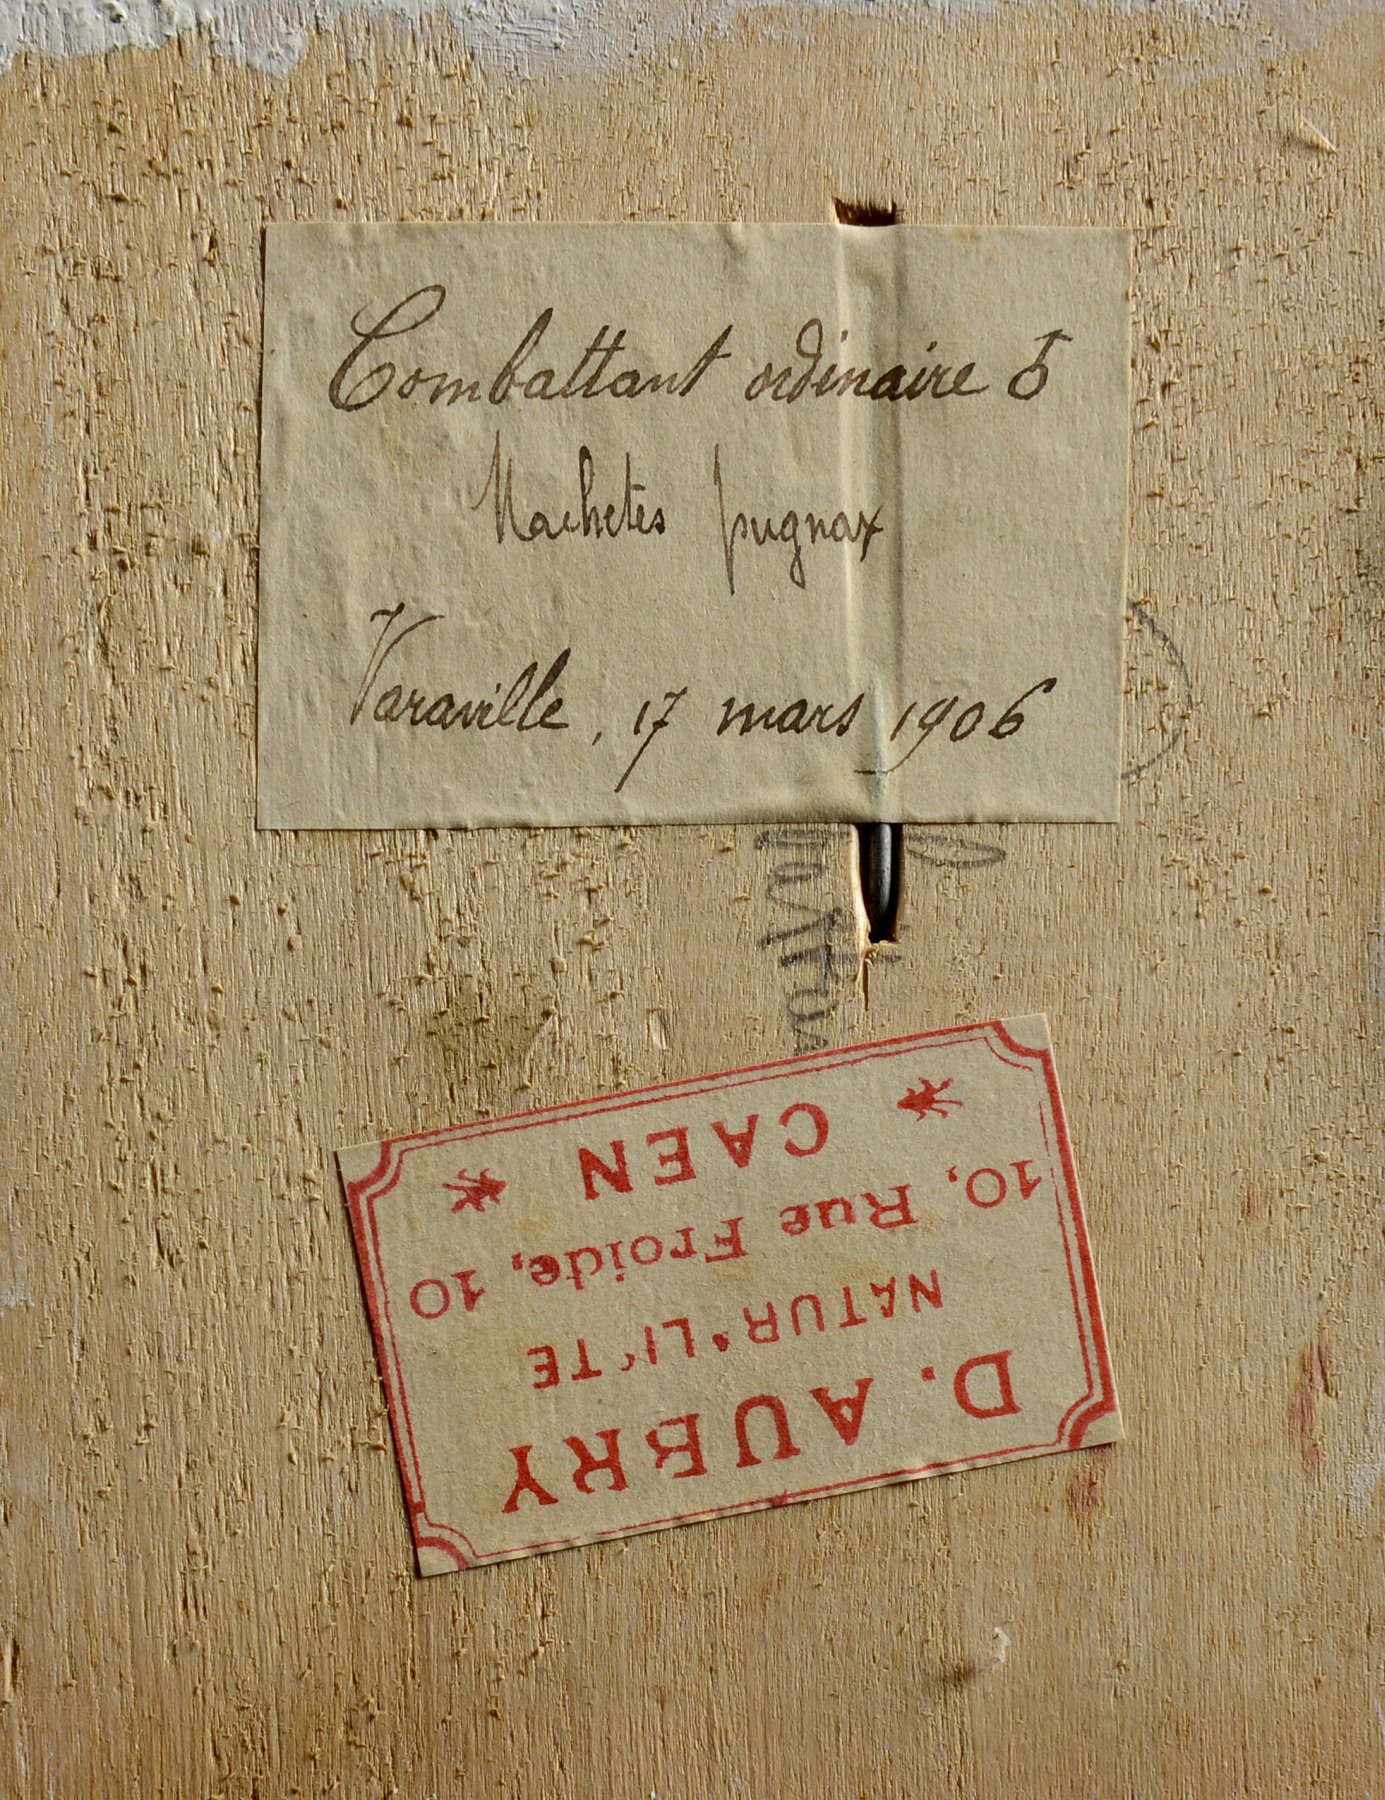 Combattant ordinaire ♂
Machetes pugnax
Varaville, 17 mars 1906
D. AUBRY
NATUR LI TE
10, Rue Froide, 10
CAEN